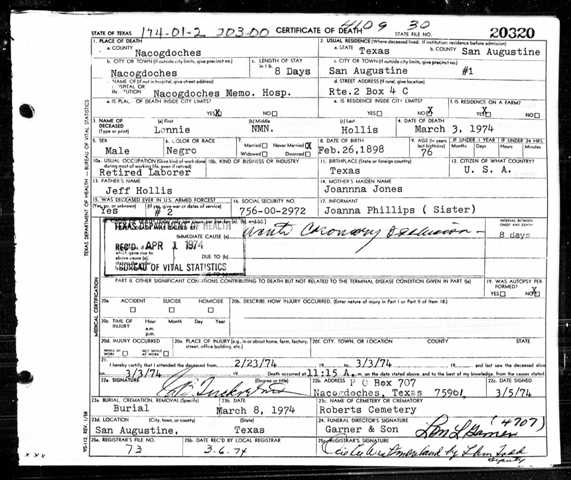 174-01-2 203.00 4109 30
STATE OF TEXAS CERTIFICATE OF DEATH STATE FILE NO. 20320
1. PLACE OF DEATH 2. USUAL RESIDENCE (Where deceased lived. If institution: residence before admission)
a. COUNTY Nacogdoches a. STATE Texas b. COUNTY San Augustine
b. CITY OR TOWN (If outside city limits, give precinct no.) c. LENGTH OF STAY c. CITY OR TOWN (If outside city limits, give precinct no.)
Nacogdoches 8 Days San Augustine #1
d. NAME OF (If not in hospital, give street address) d. STREET ADDRESS (If rural, give location)
Nacogdoches Memo. Hosp. Rte.2 Box 4 C
e. IS PLACE OF DEATH INSIDE CITY LIMITS? e. IS RESIDENCE INSIDE CITY LIMITS? f. IS RESIDENCE ON A FARM?
YES X NO YES NO X YES NO X
3. NAME OF DECEASED (Type or print) (a) First (b) Middle (c) Last 4. DATE OF DEATH
Lonnie NMN. Hollis March 3, 1974
5. SEX 6. COLOR OR RACE 7. Married Never Married X 8. DATE OF BIRTH 9. AGE (In years last birthday) IF UNDER 1 YEAR IF UNDER 24 HRS.
Male Negro Widowed Divorced Feb.26,1898 76 Months Days Hours Min.
10a. USUAL OCCUPATION (Give kind of work done during most of working life, even if retired) 10b. KIND OF BUSINESS OR INDUSTRY 11. BIRTHPLACE (State or foreign country) 12. CITIZEN OF WHAT COUNTRY?
Retired Laborer Texas U. S. A.
13. FATHER'S NAME 14. MOTHER'S MAIDEN NAME
Jeff Hollis Joannna Jones
15. WAS DECEASED EVER IN U.S. ARMED FORCES? 16. SOCIAL SECURITY NO. 17. INFORMANT
(Yes, no, or unknown) (If yes, give war or dates of service)
Yes # 2 756-00-2972 Joanna Phillips ( Sister)
TEXAS DEPARTMENT OF HEALTH
IMMEDIATE CAUSE (a) Coronary Occlusion INTERVAL BETWEEN ONSET AND DEATH
REC'D APR 1 1974 8 days
DUE TO (b)
BUREAU OF VITAL STATISTICS
DUE TO (c)
PART II. OTHER SIGNIFICANT CONDITIONS CONTRIBUTING TO DEATH BUT NOT RELATED TO THE TERMINAL DISEASE CONDITION GIVEN IN PART I(a) 19. WAS AUTOPSY PERFORMED?
YES NO X
20a. ACCIDENT SUICIDE HOMICIDE 20b. DESCRIBE HOW INJURY OCCURRED. (Enter nature of injury in Part I or Part II of item 18.)
20c. TIME OF INJURY Hour Month Day Year
a.m.
p.m.
20d. INJURY OCCURRED 20e. PLACE OF INJURY (e.g., in or about home, farm, factory, street, office building, etc.) 20f. CITY, TOWN, OR LOCATION COUNTY STATE
21. I hereby certify that I attended the deceased from 2/23/74 19 to 3/3/74 19 and last saw the deceased alive
on 3/3/74 19 Death occurred at 11:15 A. m. on the date stated above, and to the best of my knowledge, from the causes stated.
22a. SIGNATURE (Degree or title) 22b. ADDRESS P O Box 707 22c. DATE SIGNED
Nacogdoches, Texas 75961 3/5/74
23a. BURIAL, CREMATION, REMOVAL (Specify) 23b. DATE 23c. NAME OF CEMETERY OR CREMATORY
Burial March 8, 1974 Roberts Cemetery
23d. LOCATION (City, town, or county) (State) 24. FUNERAL DIRECTOR'S SIGNATURE (4707)
San Augustine, Texas Garner & Son
25a. REGISTRAR'S FILE NO. 25b. DATE REC'D BY LOCAL REGISTRAR 25c. REGISTRAR'S SIGNATURE
73 3-6-74
TEXAS DEPARTMENT OF HEALTH — BUREAU OF VITAL STATISTICS
MEDICAL CERTIFICATION